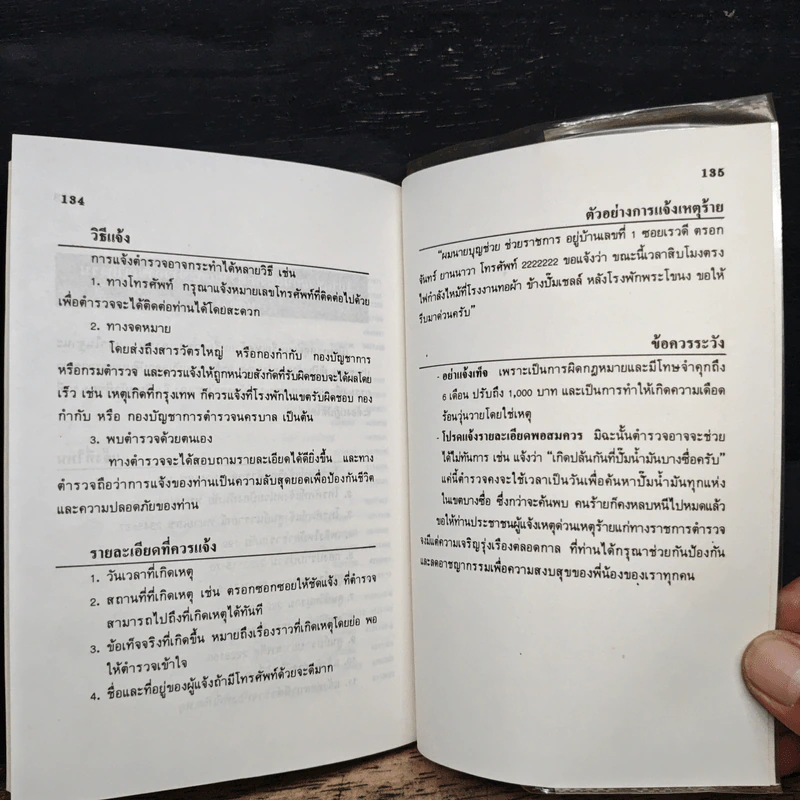 134
วิธีแจ้ง
การแจ้งตำรวจอาจกระทำได้หลายวิธี เช่น
1. ทางโทรศัพท์ กรุณาแจ้งหมายเลขโทรศัพท์ที่ติดต่อไปด้วย
เพื่อตำรวจจะได้ติดต่อท่านได้โดยสะดวก
2. ทางจดหมาย
โดยส่งถึงสารวัตรใหญ่ หรือกองกำกับ กองบัญชาการ
หรือกรมตำรวจ และควรแจ้งให้ถูกหน่วยสังกัดที่รับผิดชอบจะได้ผลโดย
เร็ว เช่น เหตุเกิดที่กรุงเทพ ก็ควรแจ้งที่โรงพักในเขตรับผิดชอบ กอง
กำกับ หรือ กองบัญชาการตำรวจนครบาล เป็นต้น
3. พบตำรวจด้วยตนเอง
ทางตำรวจจะได้สอบถามรายละเอียดได้ดียิ่งขึ้น และทาง
ตำรวจถือว่าการแจ้งของท่านเป็นความลับสุดยอดเพื่อป้องกันชีวิต
และความปลอดภัยของท่าน
รายละเอียดที่ควรแจ้ง
1. วันเวลาที่เกิดเหตุ
2. สถานที่ที่เกิดเหตุ เช่น ตรอกซอกซอยให้ชัดแจ้ง ที่ตำรวจ
สามารถไปถึงที่เกิดเหตุได้ทันที
3. ข้อเท็จจริงที่เกิดขึ้น หมายถึงเรื่องราวที่เกิดเหตุโดยย่อ พอ
ให้ตำรวจเข้าใจ
4. ชื่อและที่อยู่ของผู้แจ้งถ้ามีโทรศัพท์ด้วยจะดีมาก
135
ตัวอย่างการแจ้งเหตุร้าย
"ผมนายบุญช่วย ช่วยราชการ อยู่บ้านเลขที่ 1 ซอยเรวดี ตรอก
จันทร์ ยานนาวา โทรศัพท์ 2222222 ขอแจ้งว่า ขณะนี้เวลาสิบโมงตรง
ไฟกำลังไหม้ที่โรงงานทอผ้า ข้างปั๊มเชลล์ หลังโรงพักพระโขนง ขอให้
รีบมาด่วนครับ"
ข้อควรระวัง
- อย่าแจ้งเท็จ เพราะเป็นการผิดกฎหมายและมีโทษจำคุกถึง
6 เดือน ปรับถึง 1,000 บาท และเป็นการทำให้เกิดความเดือด
ร้อนวุ่นวายโดยใช่เหตุ
- โปรดแจ้งรายละเอียดพอสมควร มิฉะนั้นตำรวจอาจจะช่วย
ได้ไม่ทันการ เช่น แจ้งว่า "เกิดปล้นกันที่ปั๊มน้ำมันบางซื่อครับ"
แค่นี้ตำรวจคงจะใช้เวลาเป็นวันเพื่อค้นหาปั๊มน้ำมันทุกแห่ง
ในเขตบางซื่อ ซึ่งกว่าจะค้นพบ คนร้ายก็คงหลบหนีไปหมดแล้ว
ขอให้ท่านประชาชนผู้แจ้งเหตุด่วนเหตุร้ายแก่ทางราชการตำรวจ
จงมีแต่ความเจริญรุ่งเรืองตลอดกาล ที่ท่านได้กรุณาช่วยกันป้องกัน
และลดอาชญากรรมเพื่อความสงบสุขของพี่น้องของเราทุกคน